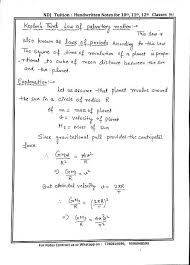 NDJ Tuition : Handwritten Notes for 10th, 11th, 12th Classes
Kepler's Third Law of planetary motion :- This law is
also known as law of periods According to the law
The square of time of revolution of a planet is propor-
-tional to cube of mean distance between the sun
and the planet.
Explanation:-
Let us assume that planet revolves around
the sun in a circle of radius R
m = mass of planet
v = velocity of planet
Ms = Mass of Sun
Since gravitational pull provides the centripetal
force
GMsm/R² = mv²/R
⇒ GMs/R = v²
But orbital velocity v = 2πR/T
⇒ GMs/R = (2πR/T)²
⇒ GMs/R = 4π²R²/T²
For Notes Contact us on Whatsapp on :